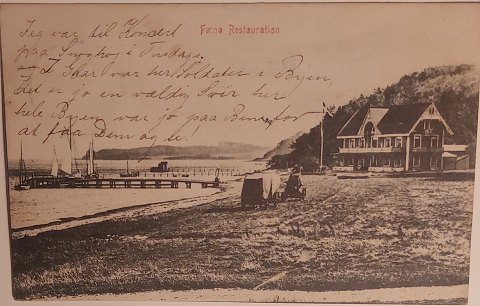 Fænø Restauration
Jeg var til Koncert
paa i Tirsdags,
og I Gaar var her Soldater i Byen,
det er jo en vældig her
hele Byen var jo paa Benene for
at faa Dem og se!